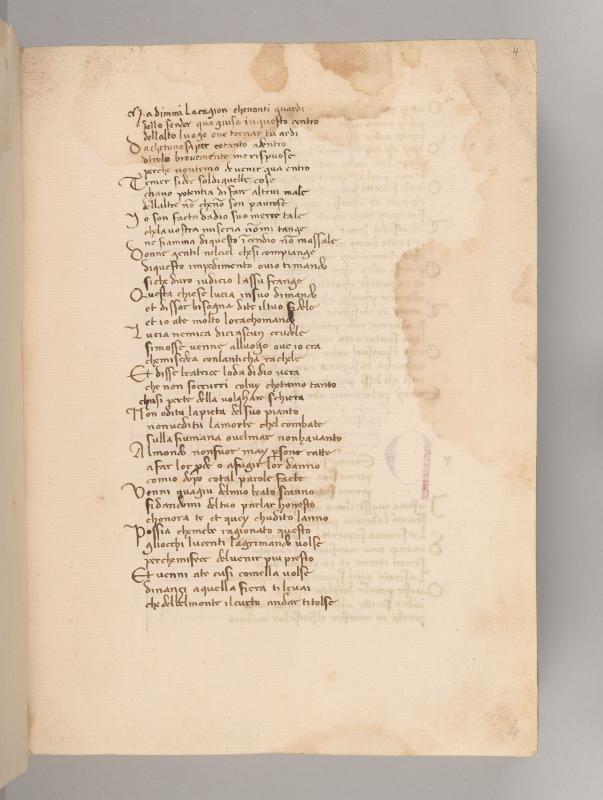 4
Ma dimmi la cagion chenonti guardi
dello sender qua giuso in questo centro
dellalto luogo ove tornar tu ardi
Da chetuvo saper cotanto adentro
dirolti brevemente me rispuose
perche nontemo de venir qua entro
Temer si de sol diquelle cose
channo potentia di fare altrui male
dellaltre nō chenō son paurose
Io son facta dadio sua merce tale
chela vostra miseria nōmi tange
ne fiamma diquesto īcendio nō massale
Donne gentil nelciel chesi compiange
diquesto impedimento ovio ti mando
siche duro iudicio lassu frange
Questa chiese lucia insuo dimando
et disse or bisogna dite il tuo fidele
et io ate molto lorachomando
Lucia nemica diciascun crudele
simosse venne alluogo ove io era
chemisedea conlanticha rachele
Et disse beatrice loda didio vera
che non soccurri coluy chetamo tanto
chusi perte della volghare schiera
Non oditu lapieta delsuo pianto
nonveditu lamorte chel combate
sulla fumana ovelmar nonhavanto
Almondo nonfuor may psone ratte
afar lor pde o afugir lor danno
comio dopo cotal parole facte
Venni quagiu delmio beato scanno
fidandomi deltuo parlar honesto
chonora te et quey chudito lanno
Possia chemebe ragionato questo
gliocchi lucenti lagrimando volse
perchemifece delvenir piu presto
Et venni ate cusi comella volse
dinanci aquella fiera ti levai
che delbelmonte ilcurto andar titolse
4